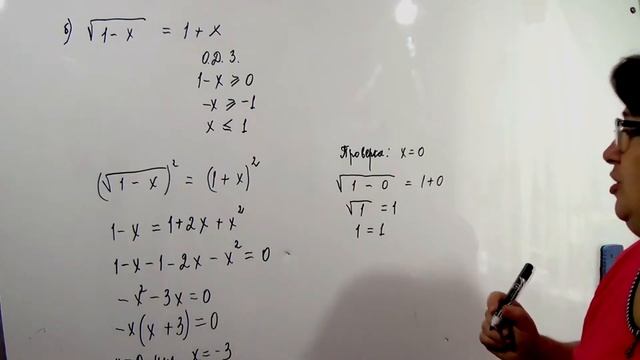 б) √(1-x) = 1+x
О.Д.З.
1-x ⩾ 0
-x ⩾ -1
x ≤ 1
(√(1-x))² = (1+x)²
1-x = 1+2x+x²
1-x-1-2x-x² = 0
-x²-3x=0
-x(x+3)=0
x=0 или x=-3
Проверка: x=0
√(1-0) = 1+0
√1 = 1
1=1